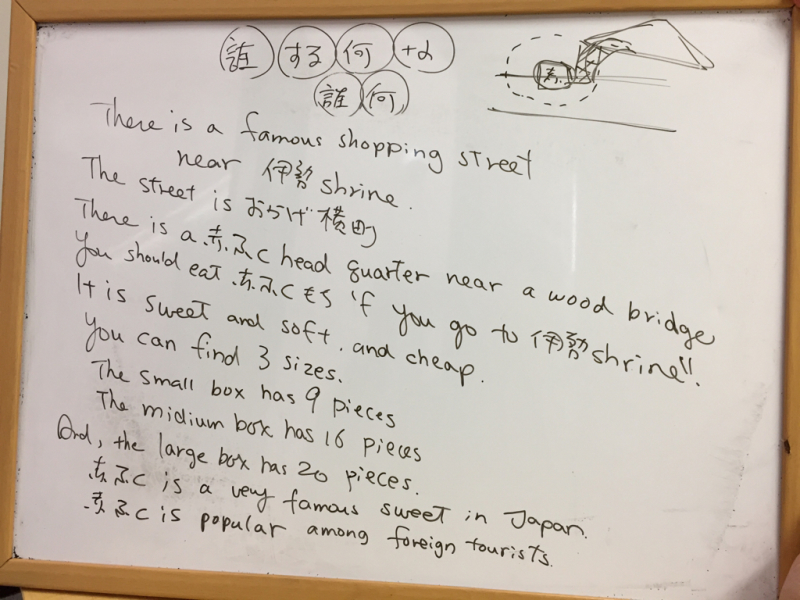 誰 する 何 +α
誰 何
赤
There is a famous shopping street
near 伊勢 shrine.
The street is おかげ横町
There is a 赤ふく head quarter near a wood bridge
You should eat 赤ふくもち if you go to 伊勢 shrine".
It is sweet and soft. and cheap.
You can find 3 sizes.
The small box has 9 pieces
The midium box has 16 pieces
And, the large box has 20 pieces.
赤ふく is a very famous sweet in Japan.
赤ふく is popular among foreign tourists.